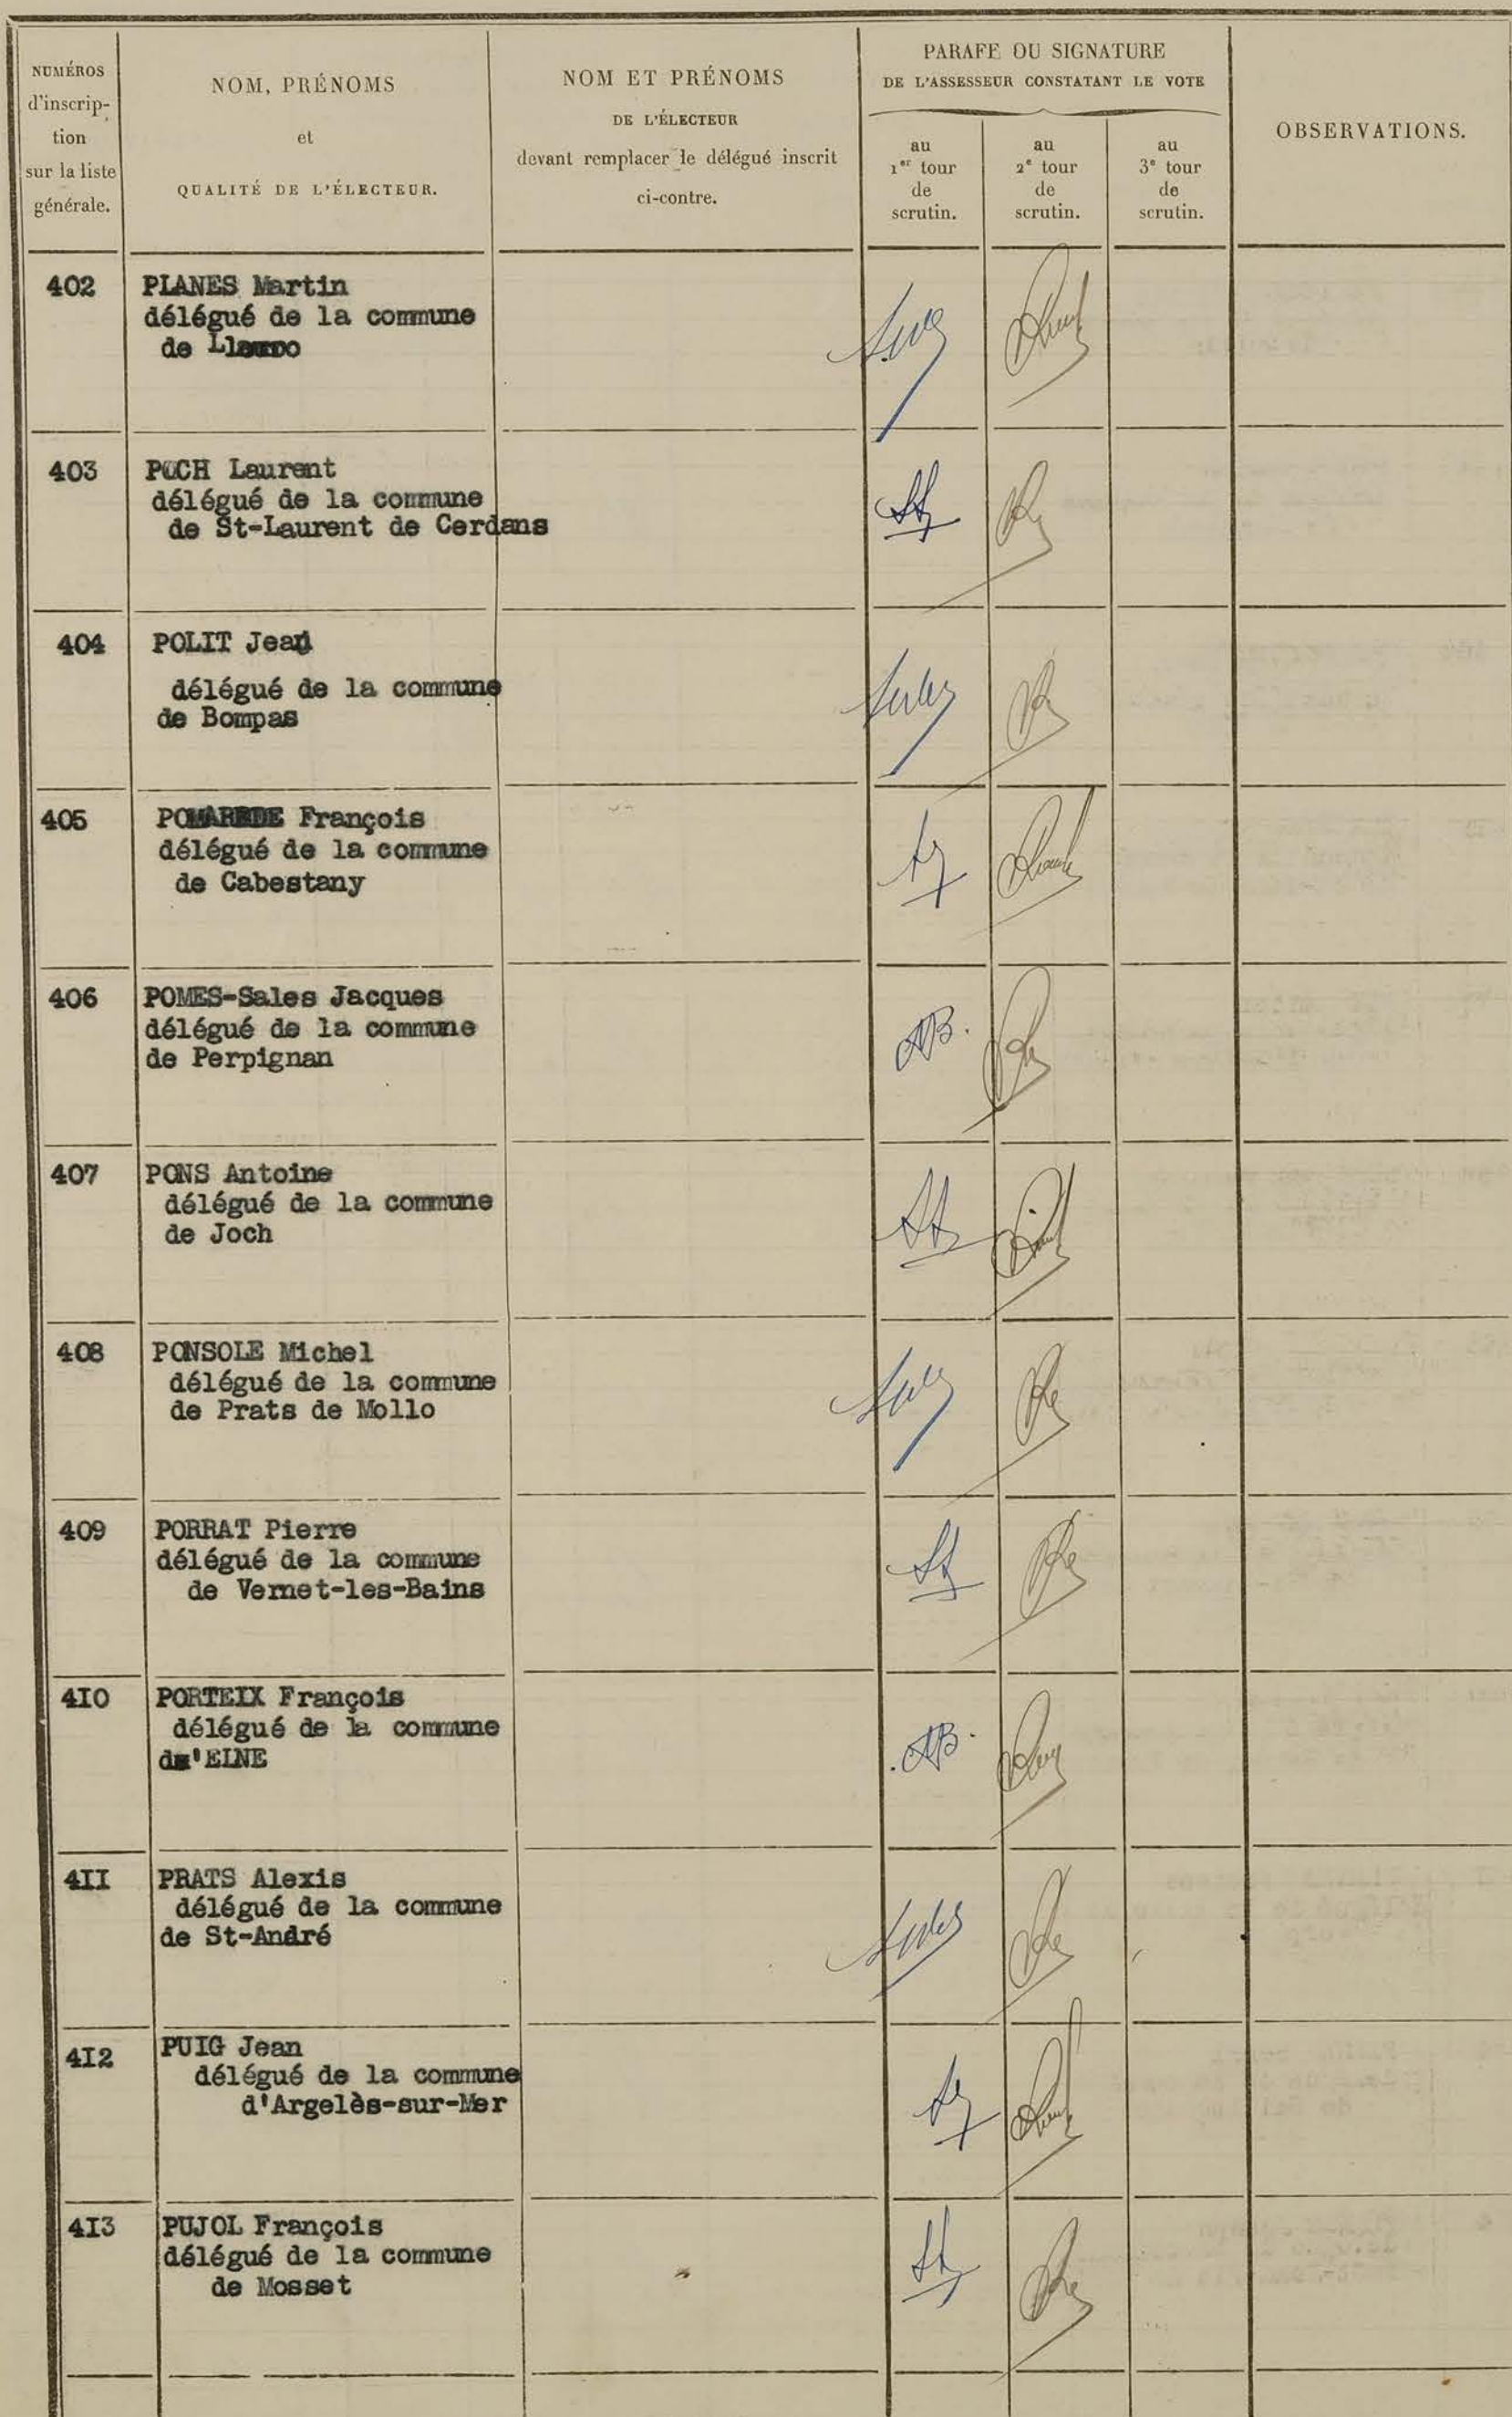 NUMÉROS
d'inscrip-
tion
sur la liste
générale.
NOM, PRÉNOMS
et
QUALITÉ DE L'ÉLECTEUR.
NOM ET PRÉNOMS
DE L'ÉLECTEUR
devant remplacer le délégué inscrit
ci-contre.
PARAFE OU SIGNATURE
DE L'ASSESSEUR CONSTATANT LE VOTE
au
1er tour
de
scrutin.
au
2e tour
de
scrutin.
au
3e tour
de
scrutin.
OBSERVATIONS.
402 PLANES Martin
délégué de la commune
de Llauro
403 POCH Laurent
délégué de la commune
de St-Laurent de Cerdans
404 POLIT Jean
délégué de la commune
de Bompas
405 POMAREDE François
délégué de la commune
de Cabestany
406 POMES-Sales Jacques
délégué de la commune
de Perpignan
AB.
407 PONS Antoine
délégué de la commune
de Joch
408 PONSOLE Michel
délégué de la commune
de Prats de Mollo
409 PORRAT Pierre
délégué de la commune
de Vernet-les-Bains
4I0 PORTEIX François
délégué de la commune
d'ELNE
AB.
4II PRATS Alexis
délégué de la commune
de St-André
4I2 PUIG Jean
délégué de la commune
d'Argelès-sur-Mer
4I3 PUJOL François
délégué de la commune
de Mosset